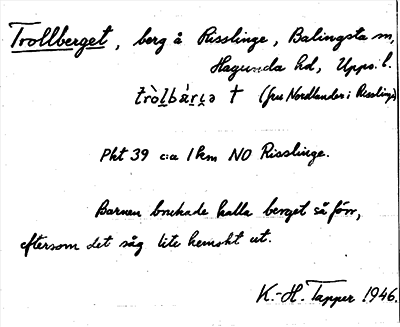 Trollberget, berg å Risslinge, Balingsta sn,
Hagunda hd, Upps. l.
(fru Nordlander i Risslinge)
Pkt 39 c:a 1 km NO Risslinge.
Barnen brukade kalla berget så förr,
eftersom det såg lite hemskt ut.
K.-H. Tapper 1946.